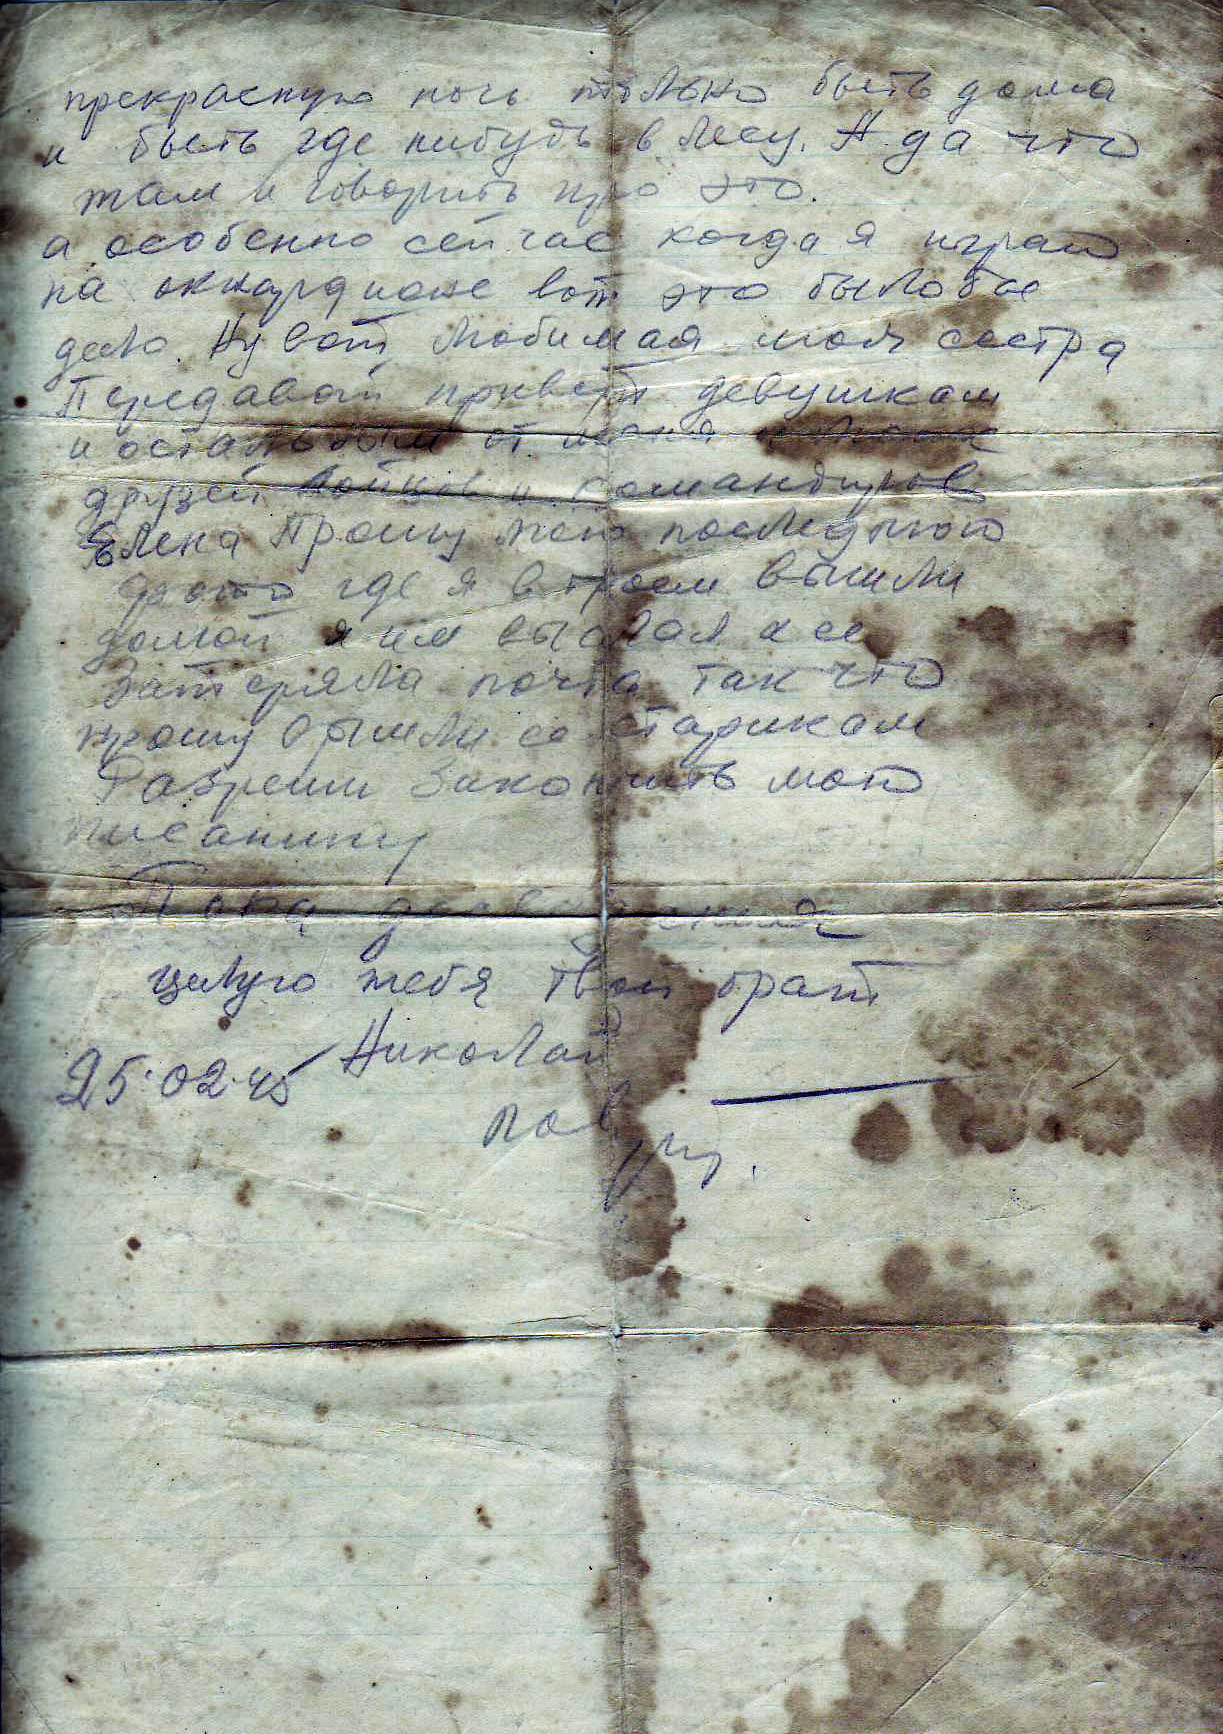 прекрасную ночь только быть дома
и быть где нибудь в лесу. А да что
там и говорить про это.
а особенно сейчас когда я играю
на аккардионе вот это было бы
дело. Ну вот любимая моя сестра
Передавай привет девушкам
и остальным от меня
друзей бойцов и командиров
Елена Прошу мою последнюю
фото где я втроем вышли
домой я им высылал и ее
затеряла почта так что
прошу вышли ее старикам
Разреши Закончить мою
писанину
Пока досвидания
целую тебя твой брат
Николай
25.02.45